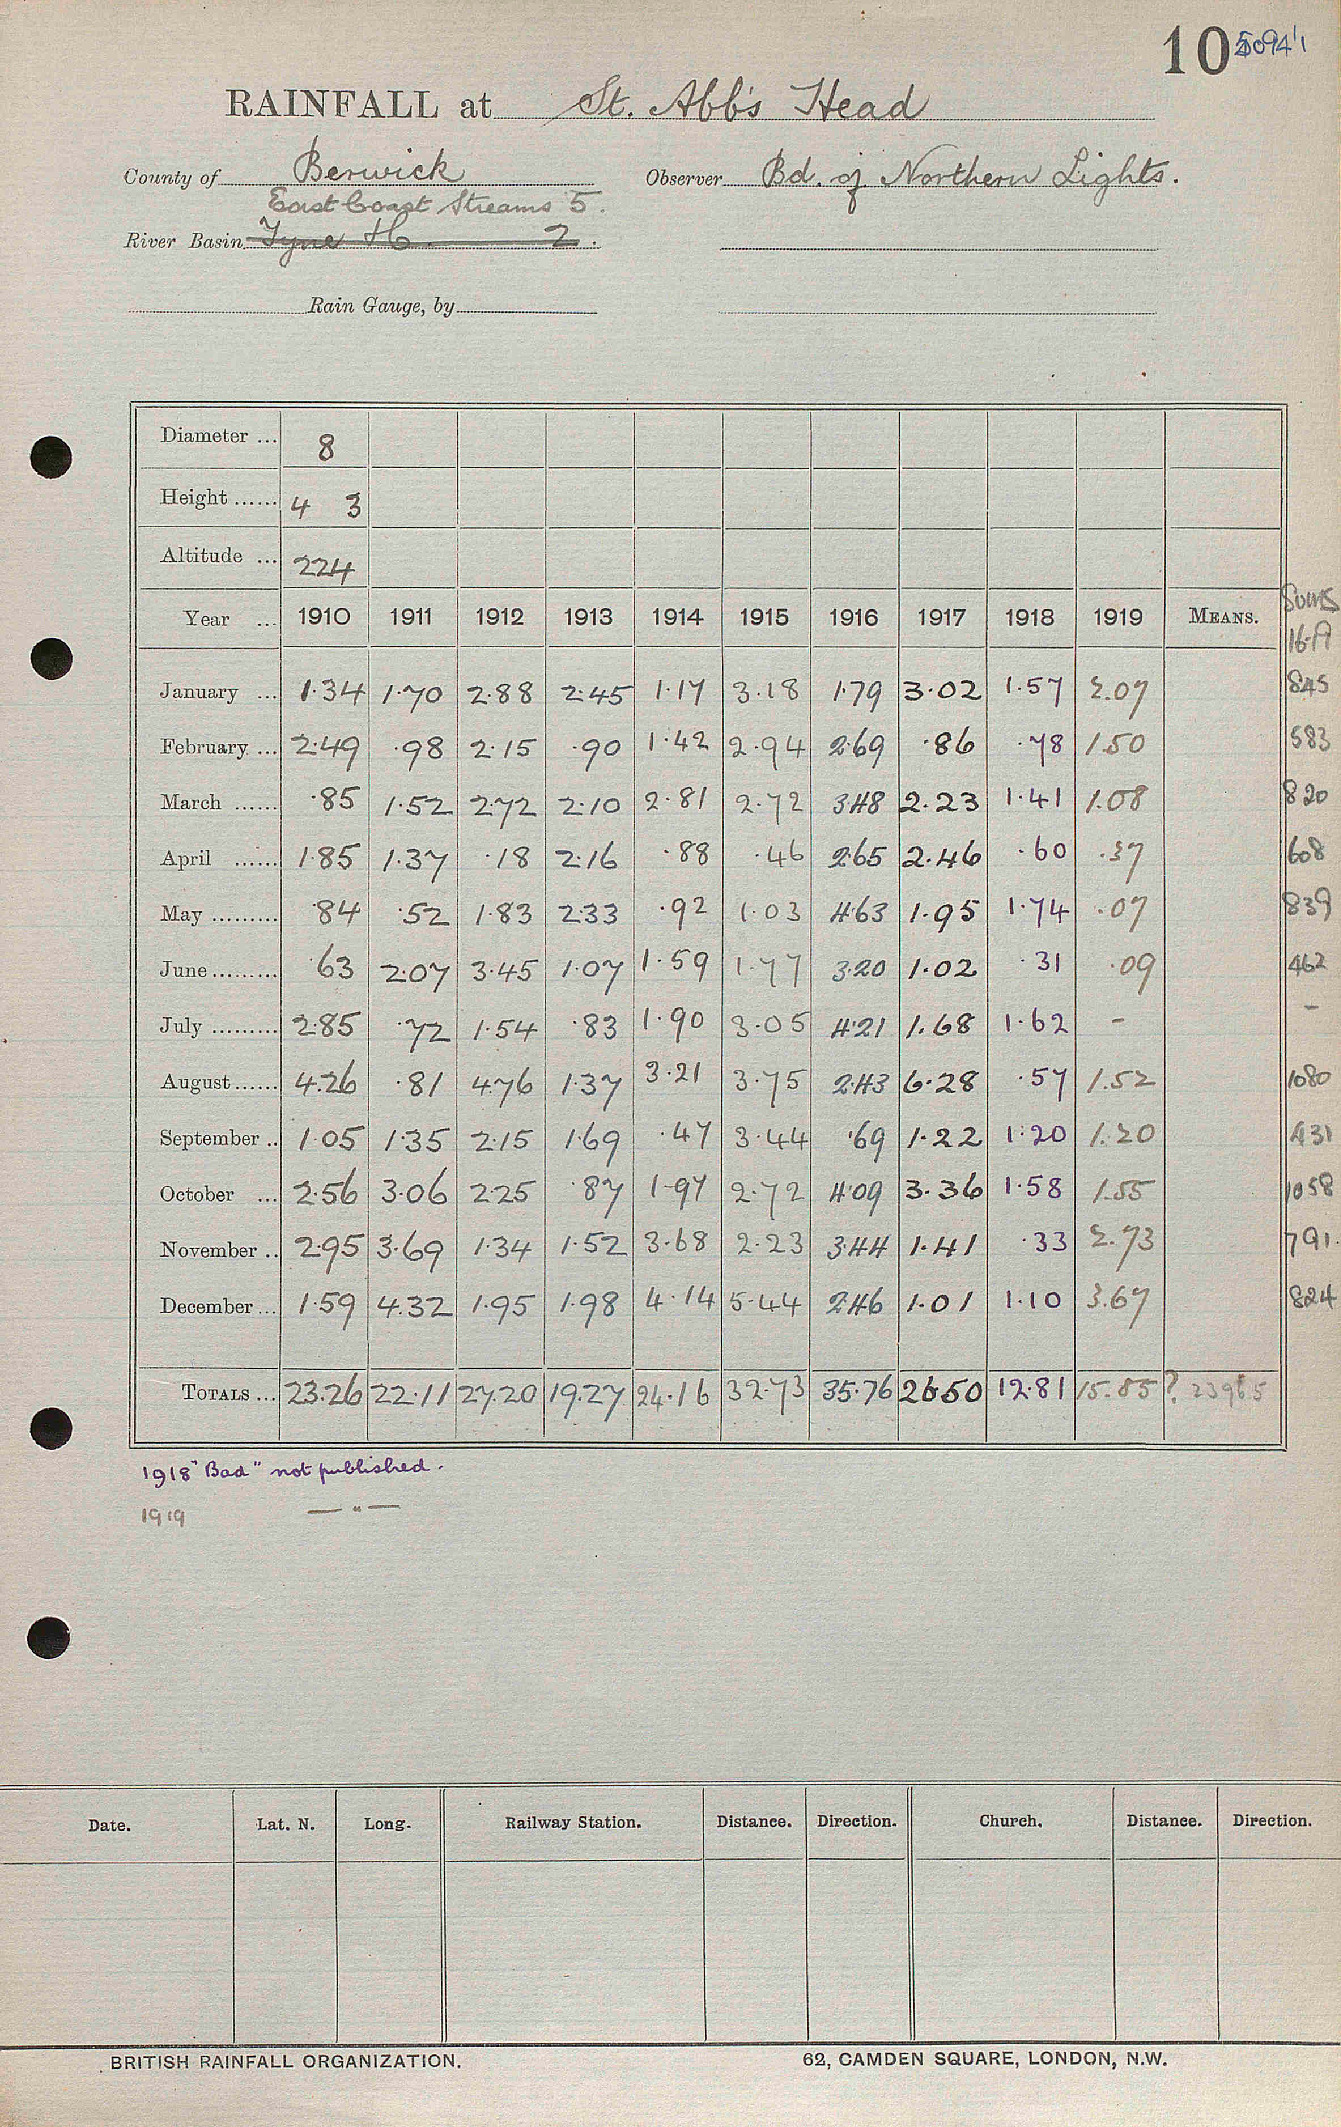 10 5094/1
RAINFALL at St. Abb's Head
County of Berwick Observer Bd. of Northern Lights.
East Coast Streams 5.
River Basin Tyne H. 2.
Rain Gauge, by
Diameter ... 8
Height ...... 4 3
Altitude ... 224
Sums
Year ... 1910 1911 1912 1913 1914 1915 1916 1917 1918 1919 MEANS. 16-19
January ... 1.34 1.70 2.88 2.45 1.17 3.18 1.79 3.02 1.57 2.07 845
February ... 2.49 .98 2.15 .90 1.42 2.94 2.69 .86 .78 1.50 583
March ...... .85 1.52 2.72 2.10 2.81 2.72 3.48 2.23 1.41 1.08 820
April ...... 1.85 1.37 .18 2.16 .88 .46 2.65 2.46 .60 .37 608
May ......... .84 .52 1.83 2.33 .92 1.03 4.63 1.95 1.74 .07 839
June ......... .63 2.07 3.45 1.07 1.59 1.77 3.20 1.02 .31 .09 462
July ......... 2.85 .72 1.54 .83 1.90 3.05 4.21 1.68 1.62 - -
August ...... 4.26 .81 4.76 1.37 3.21 3.75 2.43 6.28 .57 1.52 1080
September .. 1.05 1.35 2.15 1.69 .47 3.44 .69 1.22 1.20 1.20 431
October ... 2.56 3.06 2.25 .87 1.97 2.72 4.09 3.36 1.58 1.55 1058
November .. 2.95 3.69 1.34 1.52 3.68 2.23 3.44 1.41 .33 2.73 791
December ... 1.59 4.32 1.95 1.98 4.14 5.44 2.46 1.01 1.10 3.67 824
TOTALS ... 23.26 22.11 27.20 19.27 24.16 32.73 35.76 26.50 12.81 15.85 ?
1918 "Bad" not published.
1919 — " —
Date. Lat. N. Long. Railway Station. Distance. Direction. Church. Distance. Direction.
BRITISH RAINFALL ORGANIZATION. 62, CAMDEN SQUARE, LONDON, N.W.